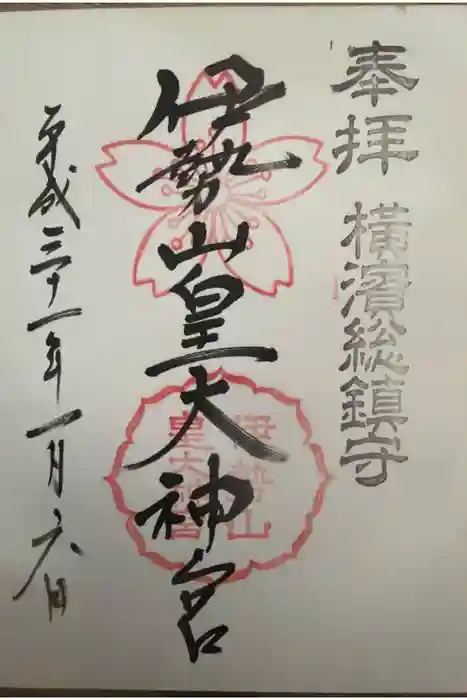 奉拝 横濱総鎮守
伊勢山皇大神宮
伊勢山
皇大神宮
平成三十一年一月六日